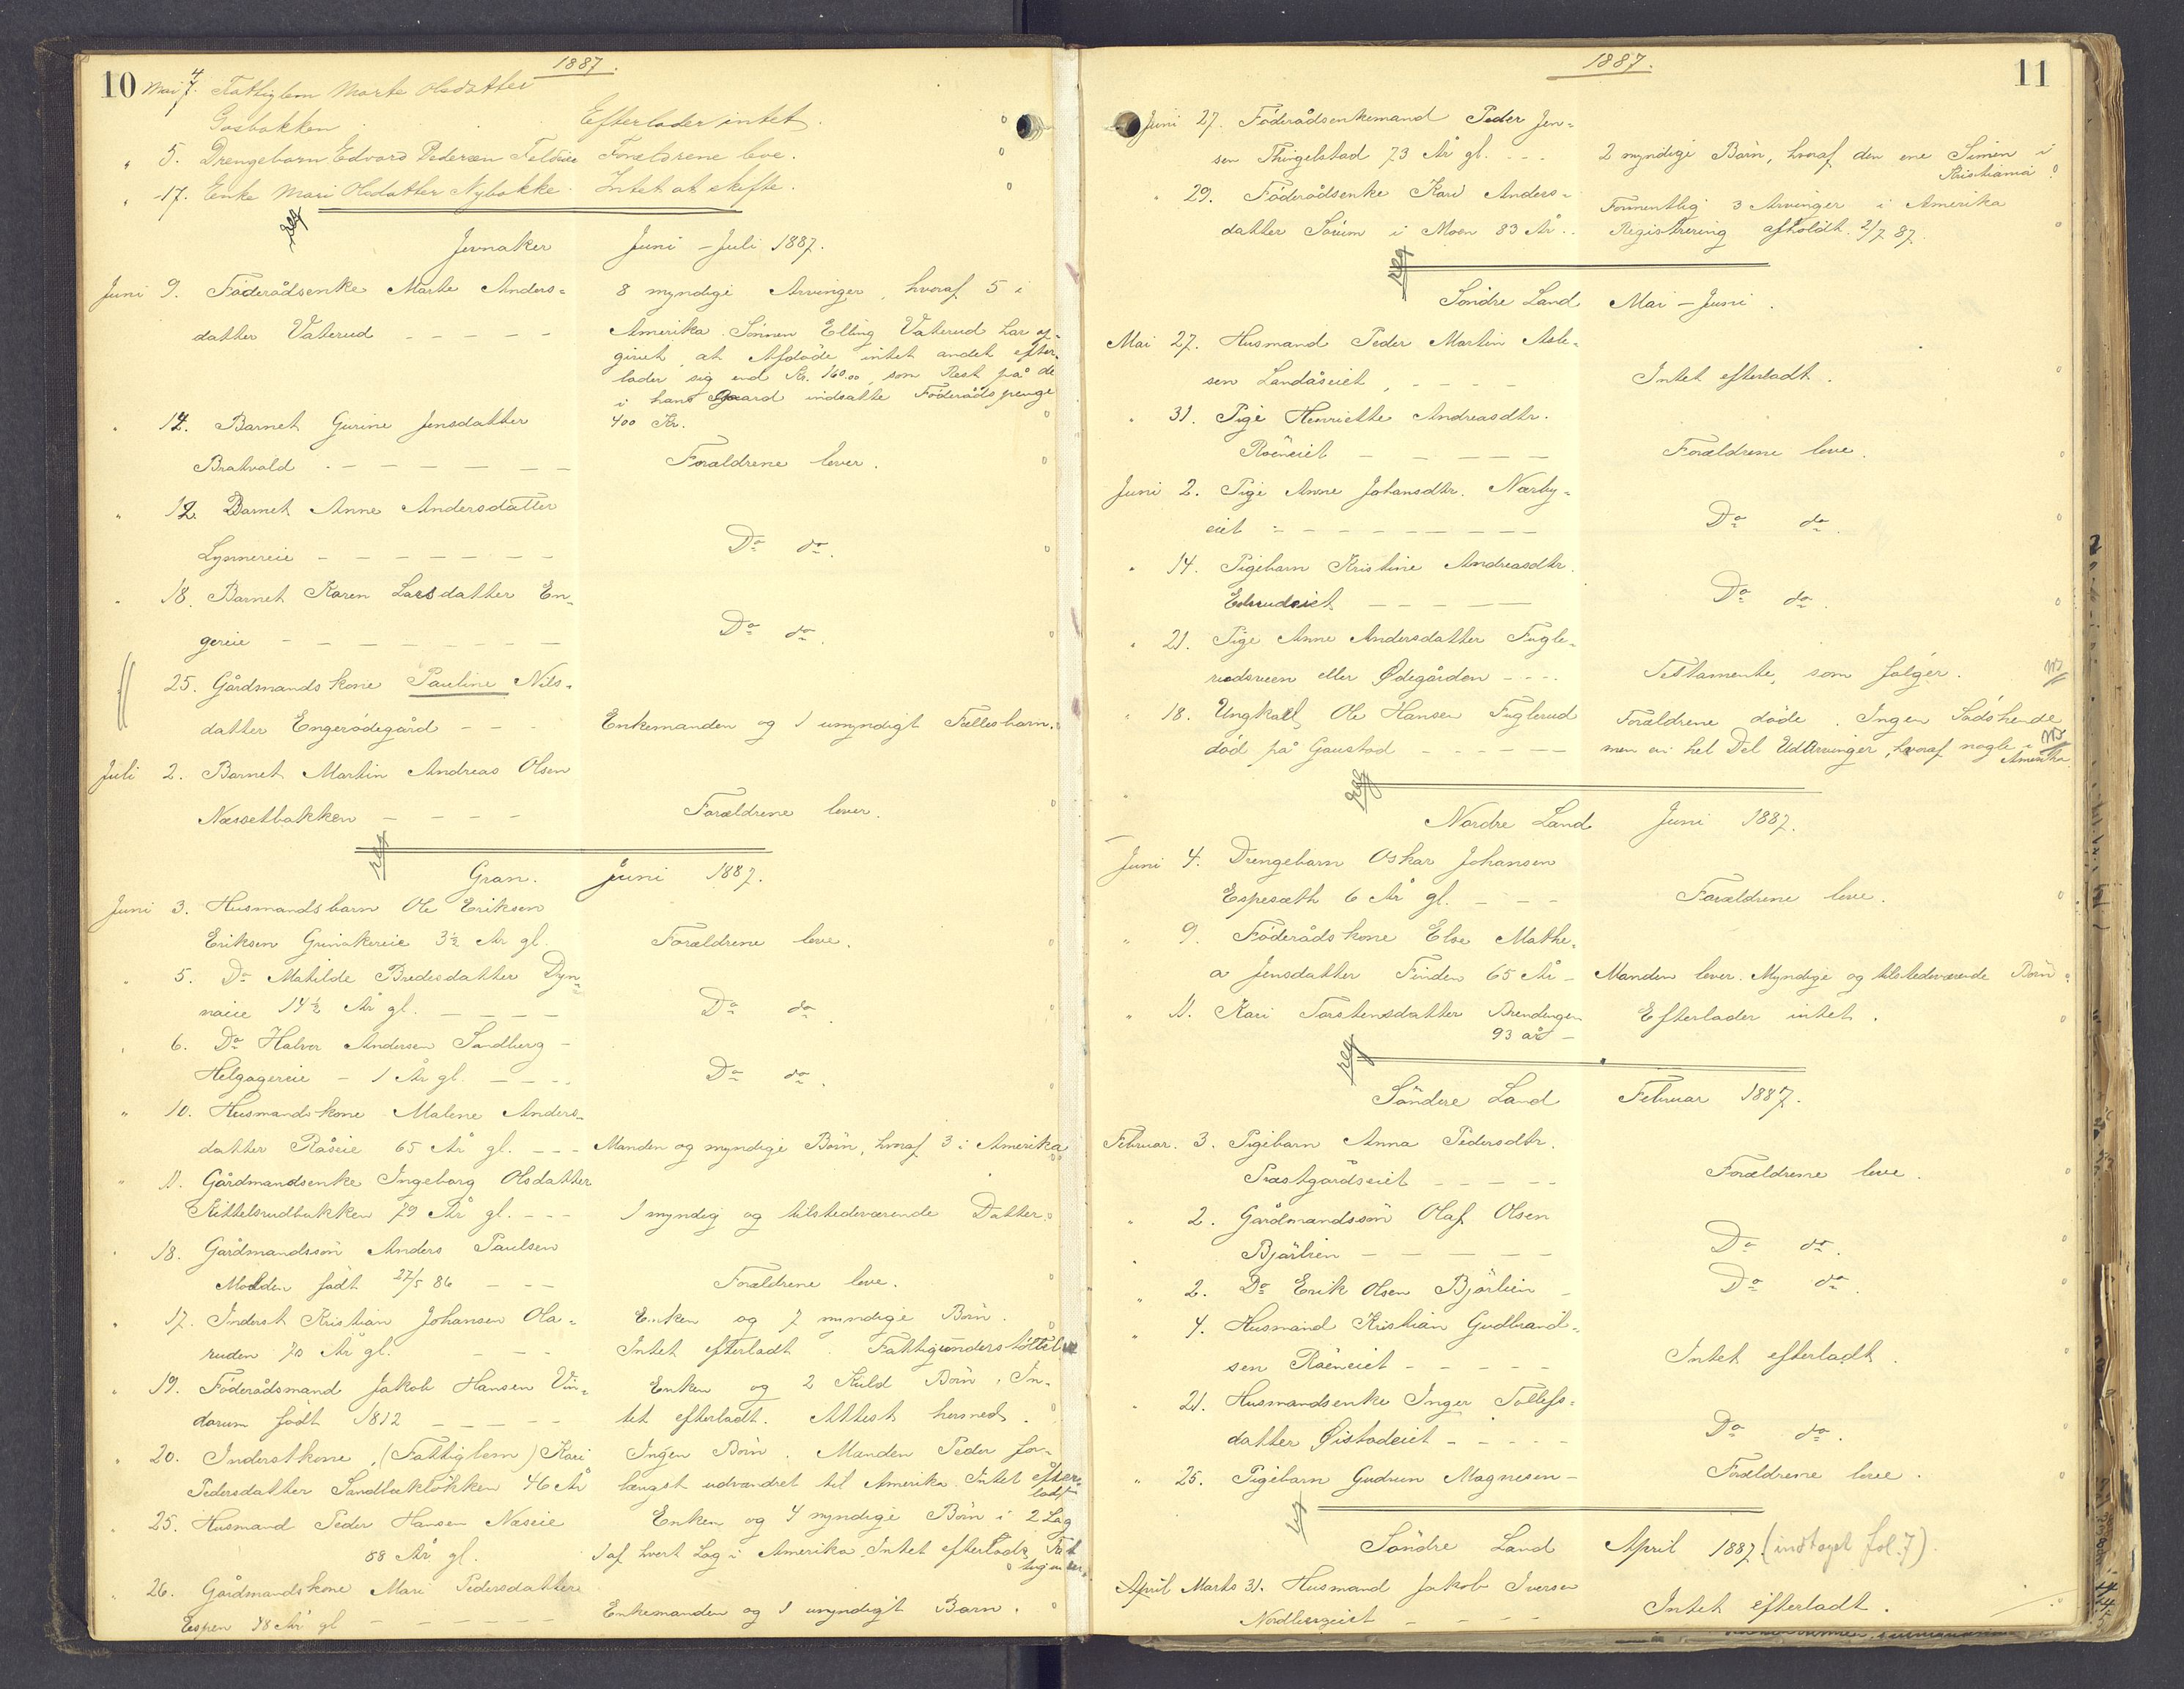 10
1887.
Mai 4. Fattiglem Marte Olsdatter
Gosbakken . . Efterlader intet.
" 5. Drengebarn Edvard Pedersen Foreldrene leve.
" 17. Enke Mari Olsdatter Nybakke. Intet at skifte.
Jevnaker Juni - Juli 1887.
Juni 9. Föderådsenke Marte Anders= 8 myndige Arvinger, hvoraf 5 i
datter Vaterud - - - - - Amerika. Sönnen Elling Vaterud har op=
givet at Afdöde intet andet efter=
lader sig end Kr. 160.00, som Rest på de
i hans Gaard indsatte Föderådspenge
" 12. Barnet Gurine Jensdatter 400 Kr.
Bratvold - - - - - - Forældrene lever.
" 12. Barnet Anne Andersdatter
Lynnereie - - - - - - Do do.
" 18. Barnet Karen Larsdatter En=
gereie - - - - - - - Do do.
25. Gårdmandskone Pauline Nils=
datter Engerödegård - - - Enkemanden og 1 umyndigt Fællesbarn.
Juli 2. Barnet Martin Andreas Olsen
Næssetbakken - - - - Forældrene lever.
Gran. Juni 1887.
Juni 3. Husmandsbarn Ole Eriksen
Eriksen Grinakereie 3½ År gl. Forældrene leve.
" 5. Do Mathilde Bredesdatter Dyn=
naeie 14½ År gl. - - - - Do do.
" 6. Do Halvor Andersen Sandberg -
Helgagereie - 1 År gl. - - - Do do.
" 10. Husmandskone Malene Anders=
datter Råseie 65 År gl. - - - Manden og myndige Börn, hvoraf 3 i Amerika
" 11. Gårdmandsenke Ingeborg Olsdatter
Kittelsrudbakken 79 År gl. - - - 1 myndig og tilstedeværende Datter.
" 18. Gårdmandssön Anders Paulsen
Modden födt 27/5 86 - - - Forældrene leve.
" 17. Inderst Kristian Johansen Ola= Enken og 7 myndige Börn.
ruden 70 År gl. - - - Intet efterladt. Fattigunderstöttelse
" 19. Föderådsmand Jakob Hansen Vin= Enken og 2 Kuld Börn. In=
darum födt 1812 - - - - - tet efterladt. Attest hermed.
" 20. Inderstkone, (Fattiglem) Kari Ingen Börn. Manden Peder for=
Pedersdatter Sandbækløkken 46 År længst udvandret til Amerika. Intet efter=
ladt
" 25. Husmand Peder Hansen Næseie Enken og 4 myndige Börn i 2 Lag
58 År gl. 1 af hvert Lag i Amerika. Intet efterladt.
" 26. Gårdmandskone Mari Pedersdatter
Espen 48 År gl - - - - - - Enkemanden og 1 umyndigt Barn.
1887.
11
Juni 27. Föderådsenkemand Peder Jen=
sen Thingelstad 73 År gl. - - - 2 myndige Börn, hvoraf den ene Simen i
Kristiania
" 29. Föderådsenke Kari Anders= Formentlig 3 Arvinger i Amerika
datter Sörum i Moen 83 År.. Registrering afholdt. 2/7 87.
Söndre Land Mai - Juni.
Mai 27. Husmand Peder Martin Asle=
sen Landåseiet, - - - - Intet efterladt.
" 31. Pige Henriette Andreasdtr.
Röeneiet - - - - - Forældrene leve.
Juni 2. Pige Anne Johansdtr. Nærby=
eiet - - - - - - - - Do do.
" 14. Pigebarn Kristine Andreasdtr.
- - - - - Do do.
" 21. Pige Anne Andersdatter Fugle=
rudsveen eller Ødegården - - - - Testamente, som fölger.
" 18. Ungkarl Ole Hansen Fuglerud Forældrene döde. Ingen Södskende
död på Gaustad - - - - - - men en hel Del Udarvinger, hvoraf nogle i
Amerika
Nordre Land Juni 1887.
Juni 4. Drengebarn Oskar Johansen
Espesæth 6 År gl. - - - Forældrene leve.
" 9. Föderådskone Else Mathe=
a Jensdatter Finden 65 År - Manden lever. Myndige og tilstedeværende Börn.
" 11. Kari Torstensdatter Brendengen Efterlader intet.
93 år -
Söndere Land Februar 1887.
Februar. 3. Pigebarn Anna Pedersdtr.
Præstgårdseiet - - - - - Forældrene leve.
" 2. Gårdmandssön Olaf Olsen
Bjärlien - - - - - Do do.
" 2. Do Erik Olsen Bjärlien - Do do.
" 4. Husmand Kristian Gudbrand=
sen Röeneiet - - - - - Intet efterladt.
" 21. Husmandsenke Inger Tollefs=
datter Øistadeiet - - - - - Do do.
" 25. Pigebarn Gudrun Magnesen - Forældrene leve.
Söndre Land April 1887. (indtaget fol. 7).
April Marts 31. Husmand Jakob Iversen
- - - - Intet efterladt.